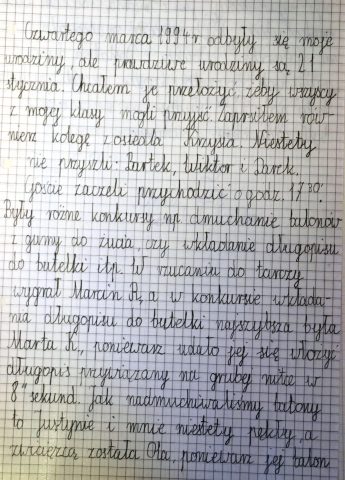 Czwartego marca 1994 r odbyły się moje
urodziny, ale prawdziwe urodziny są 21
stycznia. Chciałem je przełożyć żeby wszyscy
z mojej klasy mogli przyjść. Zaprsiłem rów-
nierz kolegę z osiedla Krzysia. Niestety
nie przyszli: Bartek, Wiktor i Darek.
Goście zaczeli przychodzić o godz. 17³⁰.
Były różne konkursy np. dmuchanie balonów
z gumy do żucia, czy wkładanie długopisu
do butelki itp. W rzucaniu do tarczy
wygrał Marcin R, a w konkursie wkłada-
nia długopisu do butelki najszybsza była
Marta K., poniewarz udało jej się włożyć
długopis przywiązany na grubej nitce w
8" sekund. Jak nadmuchiwaliśmy balony
to Justynie i mnie niestety pękły, a
zwciezcą została Ola, poniewarz jej balon